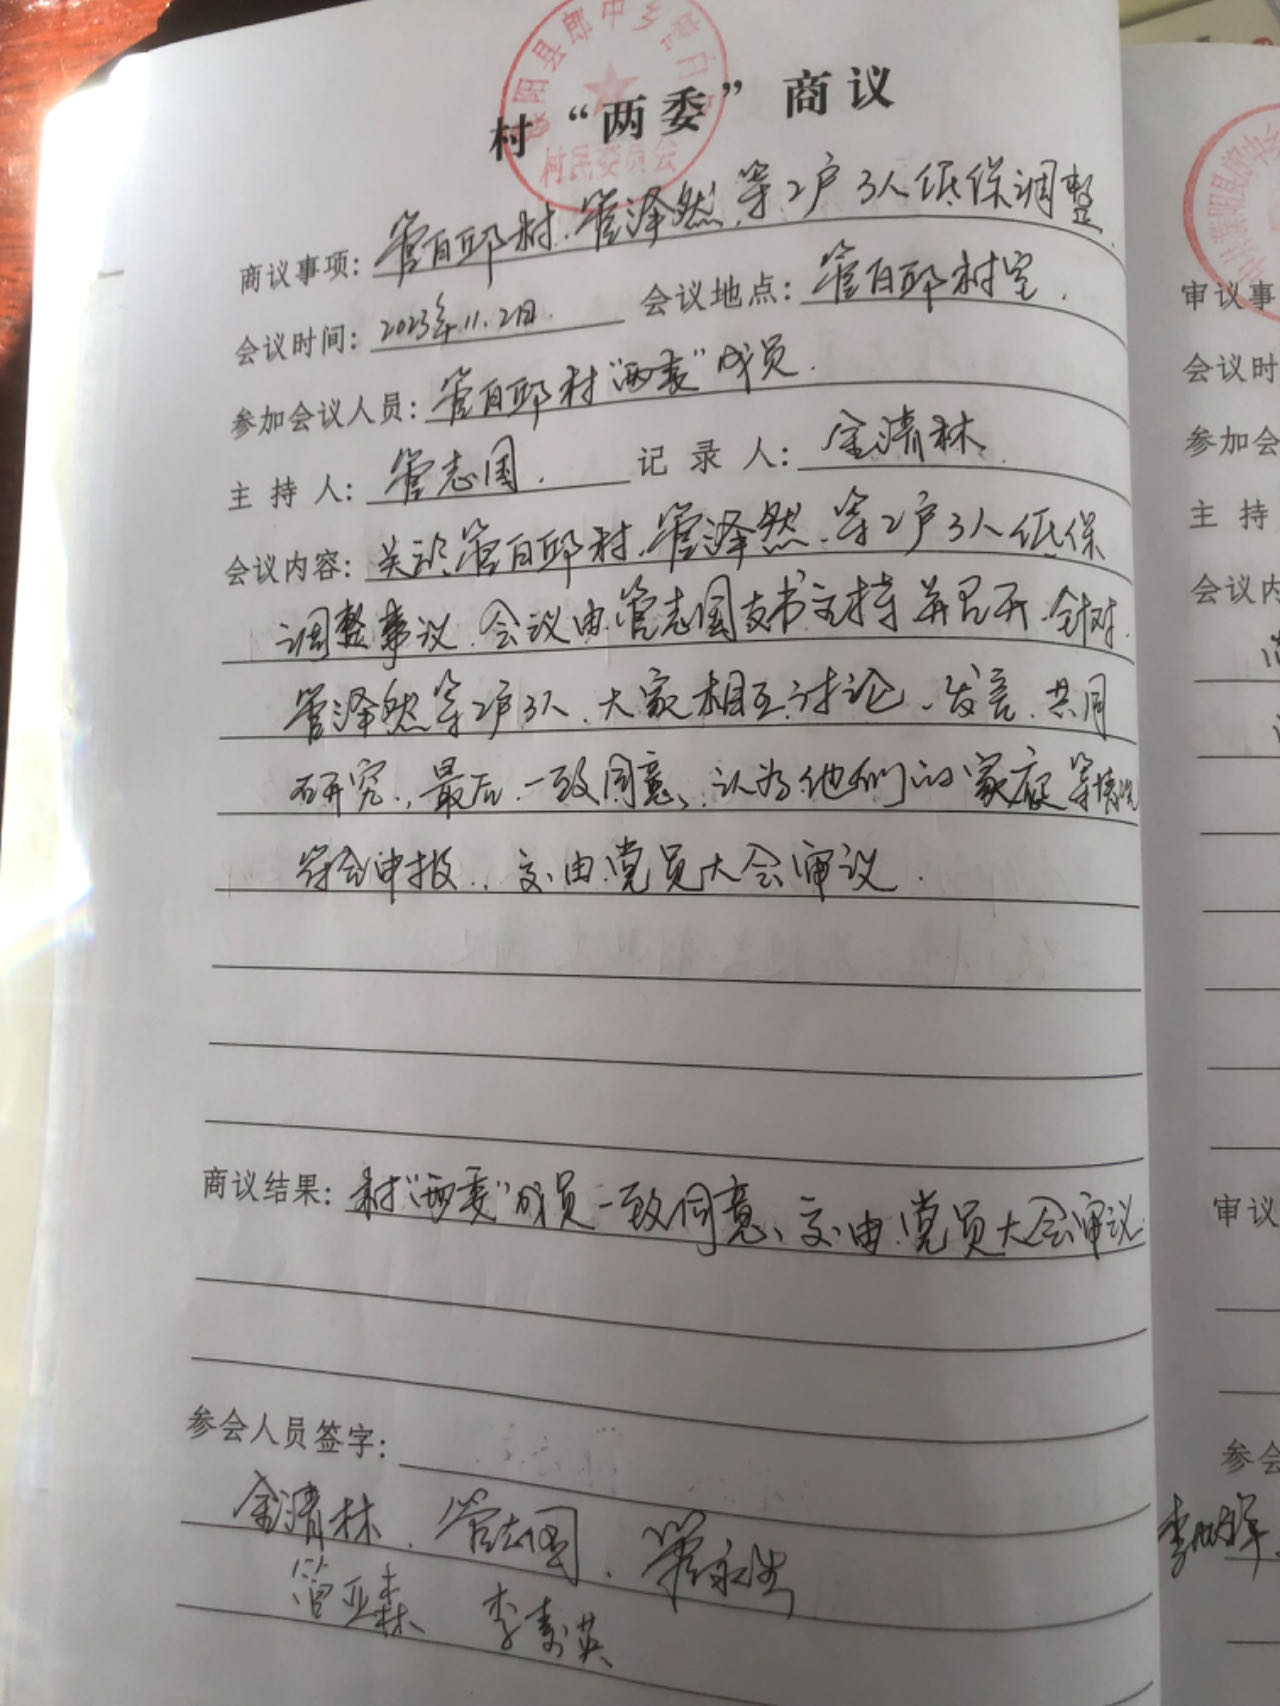 阳县郎中乡管
村民委员会
村“两委”商议
商议事项：管白邱村、管泽然等2户3人低保调整
会议时间：2023年11.2日. 会议地点：管白邱村室.
参加会议人员：管白邱村“两委”成员.
主持人：管志国. 记录人：金清林.
会议内容：关于管白邱村、管泽然等2户3人低保
调整事议.会议由管志国支书主持并召开.针对
管泽然等2户3人.大家相互讨论、发言.共同
研究.最后一致同意、认为他们的家庭等情况
符合申报.交由党员大会审议.
商议结果：村“两委”成员一致同意、交由党员大会审议
参会人员签字：
金清林. 管志国.
管亚森 李素英
审议事
会议时
参加会
主持
会议内
审议
参会